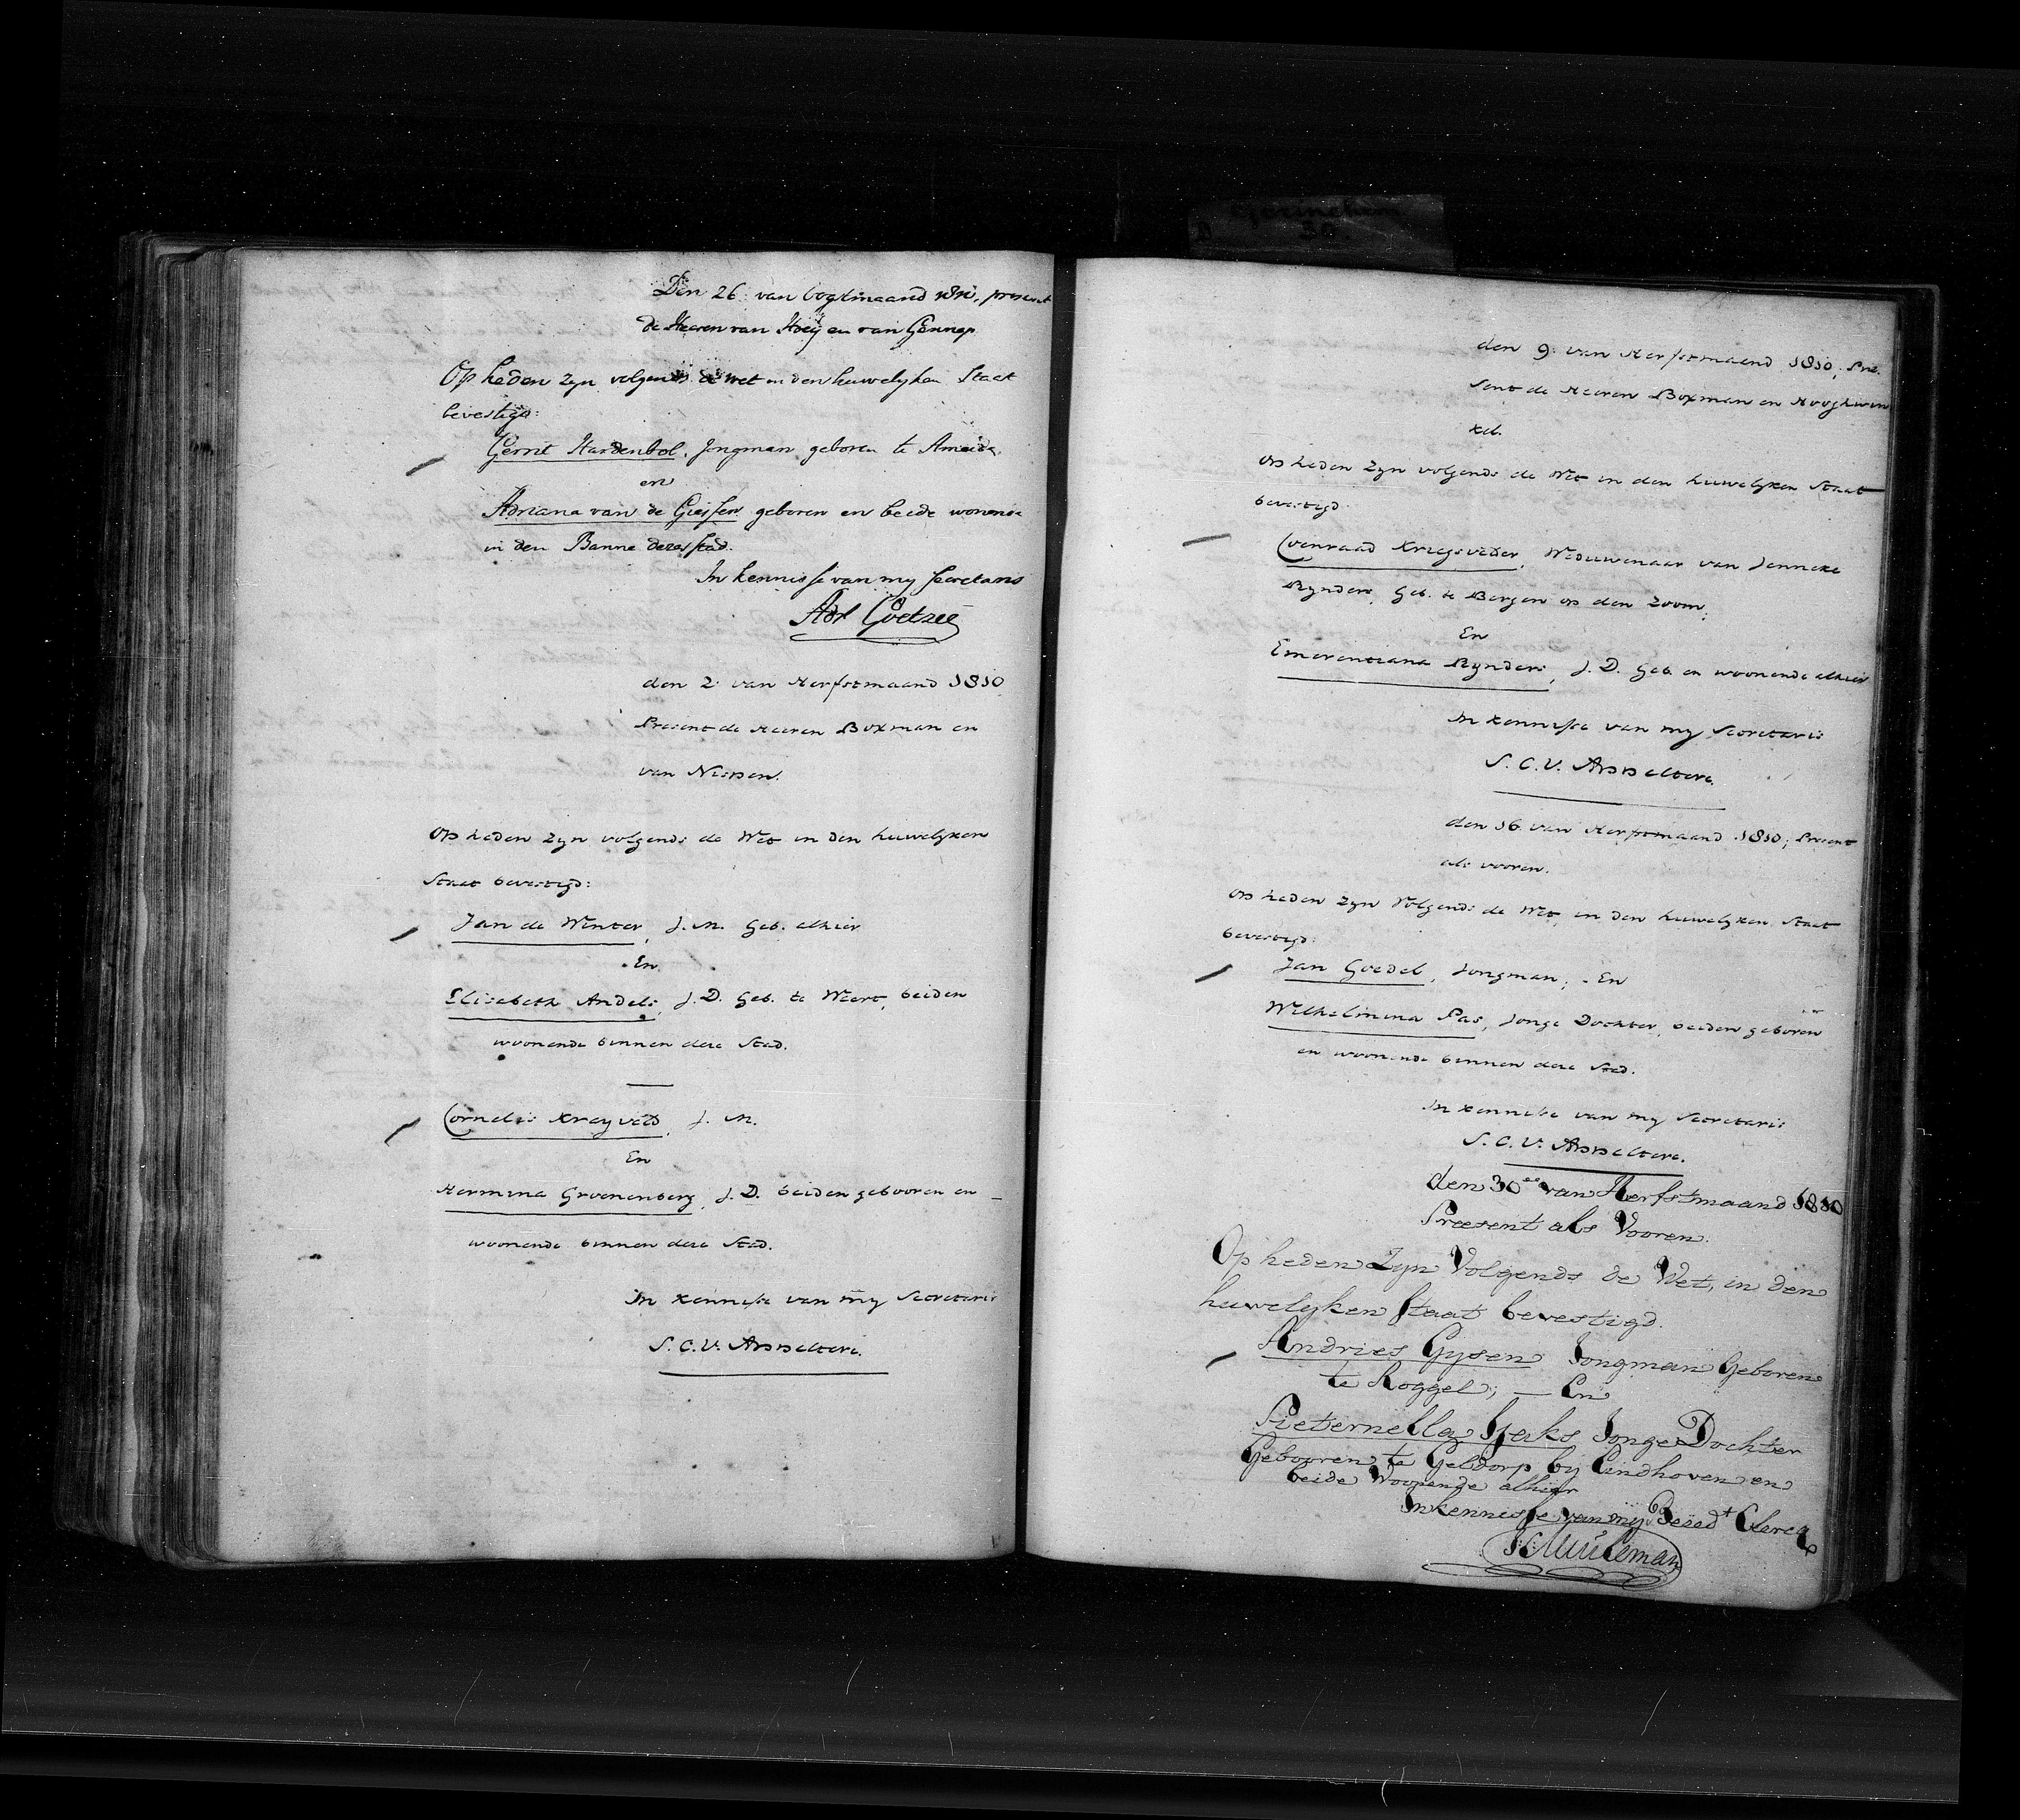 Gorinchem
D 30.
Den 26 van Oogstmaand 1810, present
de Heeren van Hoey en van Gennep
Op heden zyn volgends de wet in den huwelyken Staat
bevestigd:
Gerrit Hardenbol, Jongman geboren te Ameide
en
Adriana van de Giessen geboren en beide wonende
in den Banne dezer stad.
In kennisse van my secretaris
Adr Goetzee
den 2 van Herfstmaand 1810
Present de Heeren Boxman en
van Nierpen.
Op heden zyn volgends de Wet in den huwelyken
Staat bevestigd:
Jan de Winter, J. M. Geb. alhier
En
Elisabeth Andels, J. D. Geb. te Weert, beiden
woonende binnen deze Stad.
Cornelis Kreyveld, J. M.
En
Hermina Groenenberg, J. D. beiden gebooren en
woonende binnen deze Stad.
In kennisse van my Secretaris
S. C. V. Appeltere.
den 9. van Herfstmaand 1810; Pre-
sent de Heeren Boxman en Hooghwin
kel.
Op heden zyn volgends de Wet in den huwelyken Staat
bevestigd
Coenraad Kriegsvelder, Weduwenaar van Jenneke
Rynders, Geb. te Bergen op den Zoom;
En
Emerentiana Rynders, J. D. Geb. en woonende alhier
In kennisse van my Secretaris
S. C. V. Appeltere.
den 16 van Herfstmaand 1810; Present
als vooren.
Op heden zyn Volgends de Wet in den huwelyken Staat
bevestigd:
Jan Goedel, Jongman; - En
Wilhelmina Pas, Jonge Dochter, beiden geboren
en woonende binnen deze Stad.
In kennisse van my Secretaris
S. C. V. Appeltere.
den 30en van Herfstmaand 1810
Præsent als Vooren.
Op heden Zyn Volgends de Wet, in den
huwelyken Staat bevestigd.
Andries Gysen Jongman Geboren
te Roggel; — En
Pieternella Hjerks Jonge Dochter
Gebooren te Geldorp by Eindhoven en
beide Woonende alhier
In kennisse van my Beëed+ Clercq
Muuleman